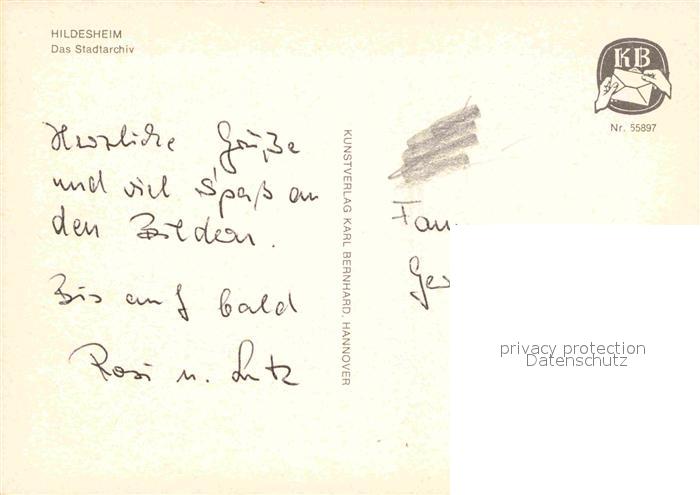 HILDESHEIM
Das Stadtarchiv
KB
Nr. 55897
Herzliche Grüße
und viel Spaß an
den Bildern.
Bis auf bald
Rosi u. Lutz
KUNSTVERLAG KARL BERNHARD, HANNOVER
privacy protection
Datenschutz